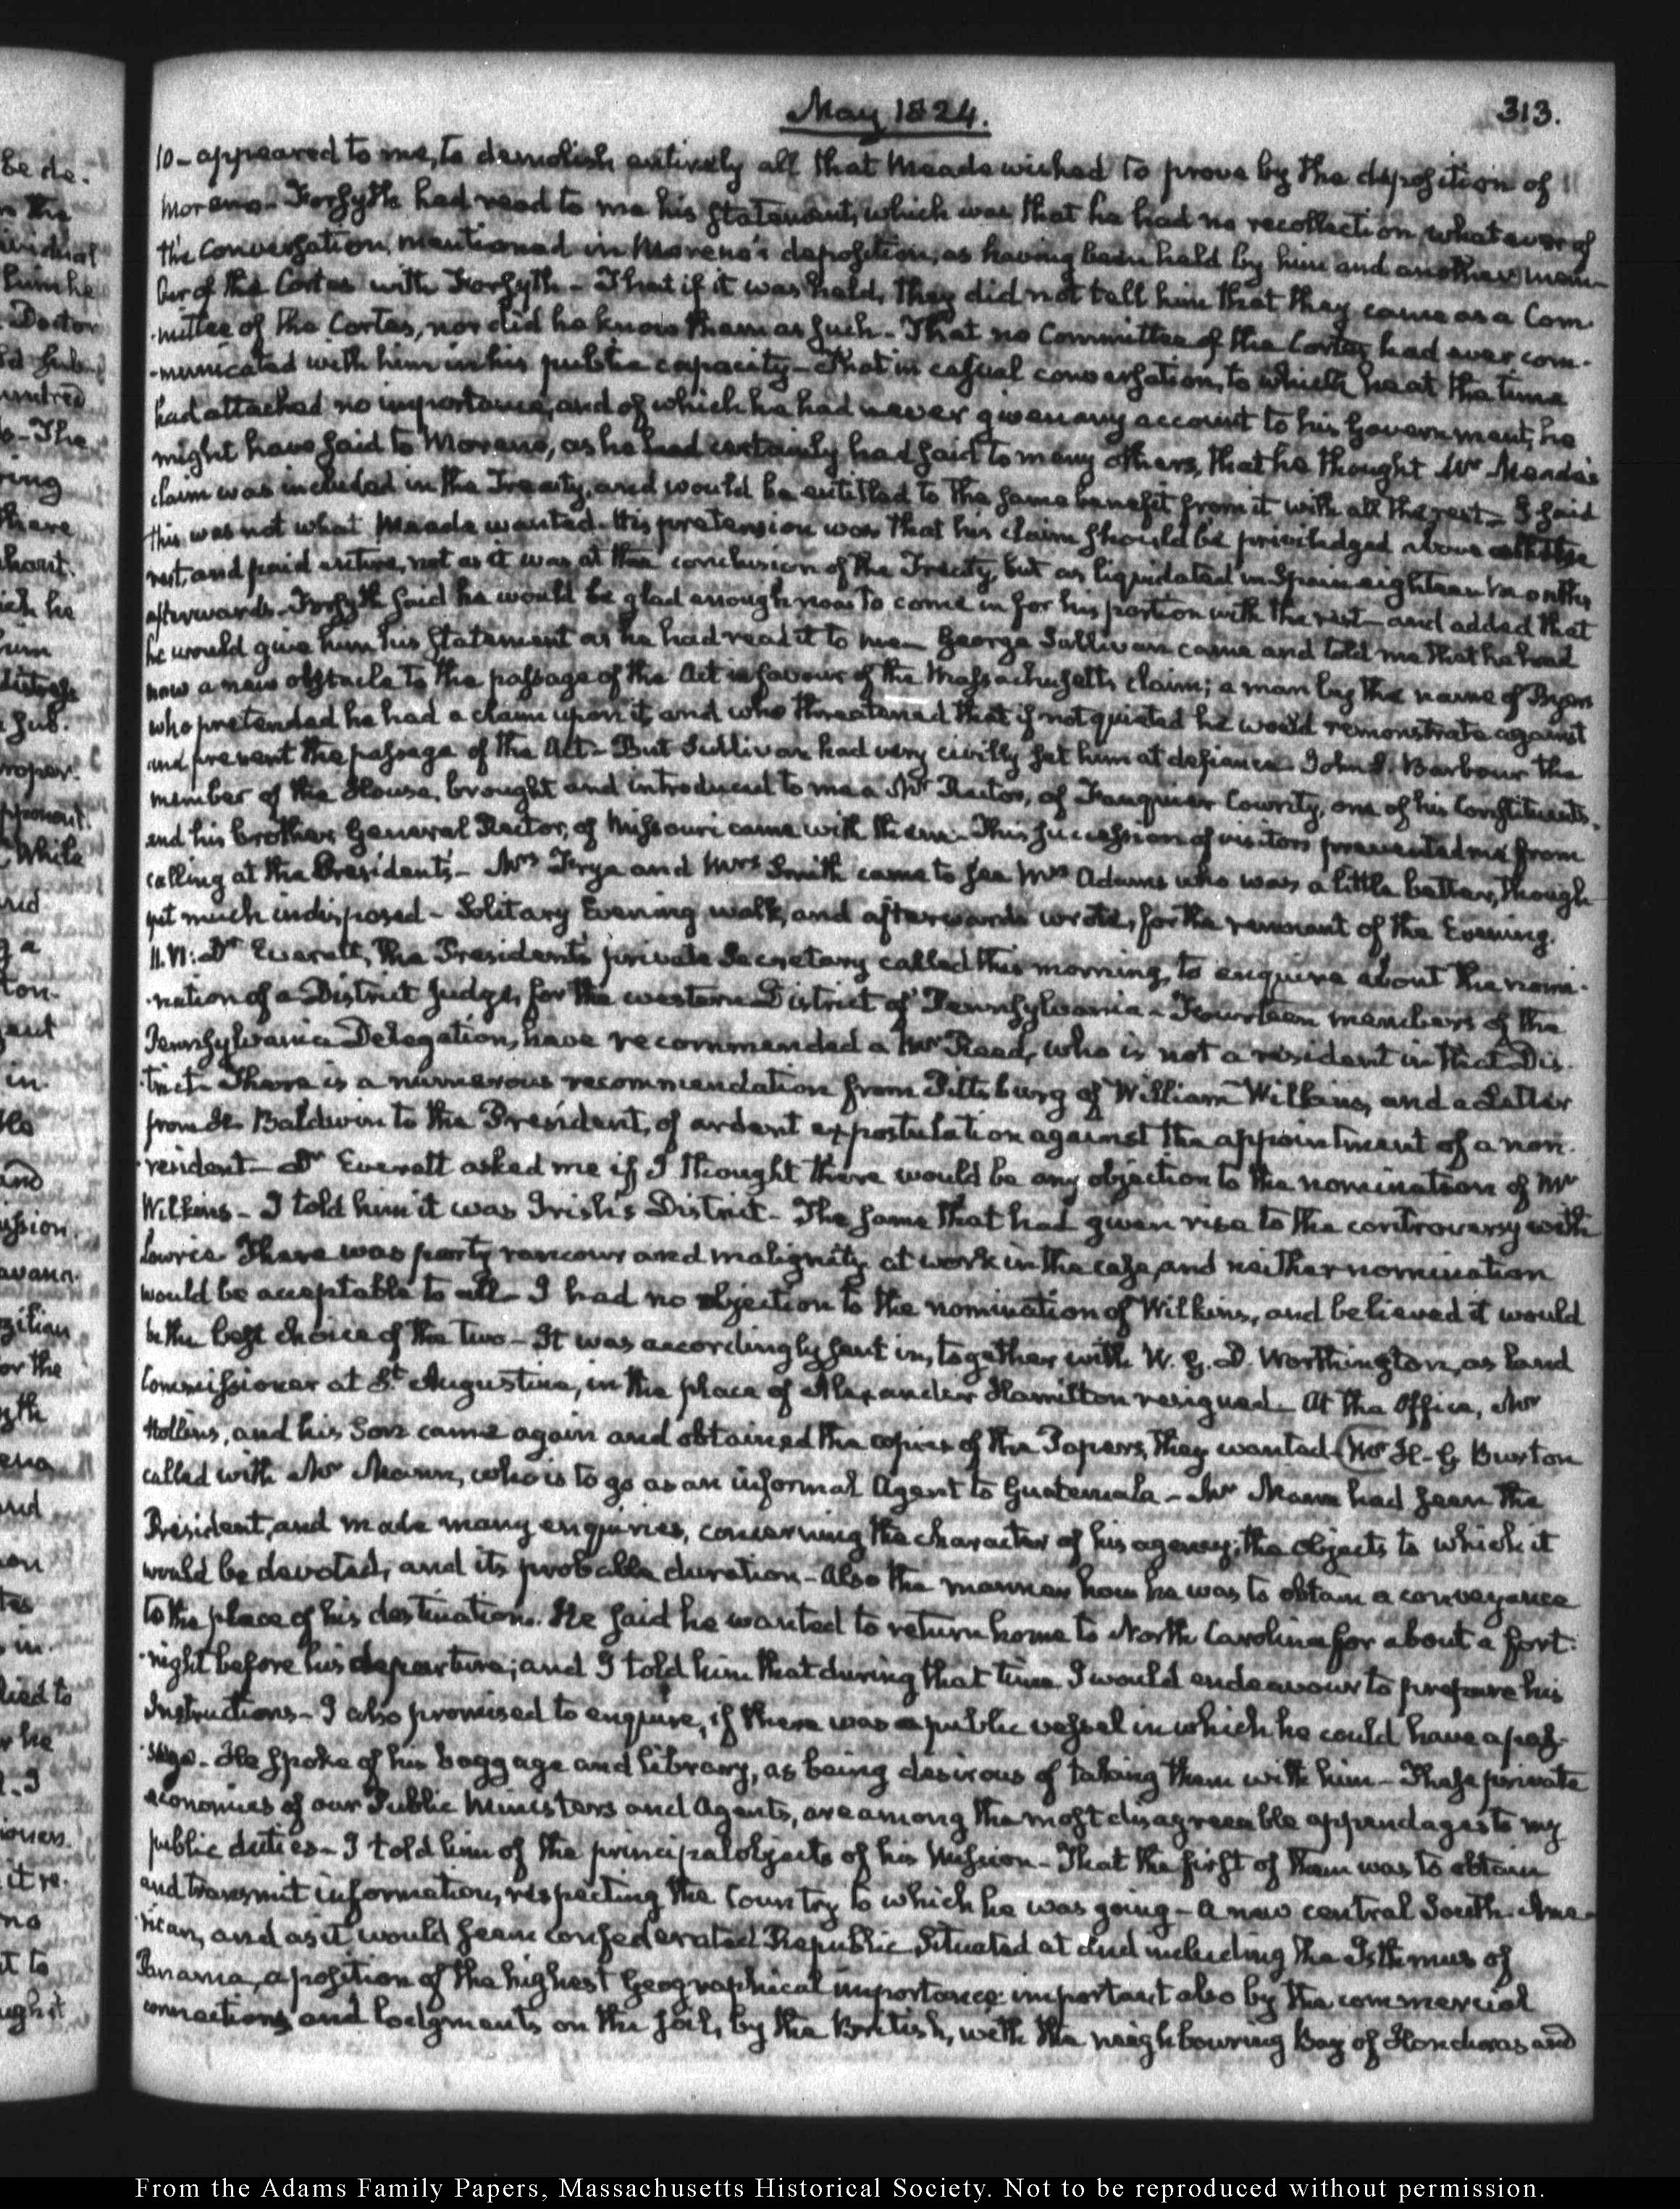 May 1824.
313.
10- appeared to me, to demolish entirely all that Meade wished to prove by the deposition of
Moreno- Forsyth had read to me his statement, which was, that he had no recollection whatever of
the conversation mentioned in Moreno's deposition, as having been held by him and another mem-
ber of the Cortes with Forsyth- That if it was held, they did not tell him that they came as a Com-
-mittee of the Cortes, nor did he know them as such- That no Committee of the Cortes had ever com-
-municated with him in his public capacity- That in casual conversation, to which he at the time
had attached no importance, and of which he had never given any account to his Government, he
might have said to Moreno, as he had certainly had said to many others, that he thought Mr Meade's
claim was included in the Treaty, and would be entitled to the same benefit from it with all the rest- I said
this was not what Meade wanted. His pretension was that his claim should be priviledged above all the
rest, and paid entire, not as it was at the conclusion of the Treaty, but as liquidated in Spain eighteen months
afterwards- Forsyth said he would be glad enough now to come in for his portion with the rest- and added that
he would give him his statement as he had read it to me- George Sullivan came and told me that he had
now a new obstacle to the passage of the Act in favour of the Massachusetts claim; a man by the name of Byers
who pretended he had a claim upon it, and who threatened that if not quieted he would remonstrate against
and prevent the passage of the Act- But Sullivan had very civilly set him at defiance- John S. Barbour the
member of the House, brought and introduced to me a Mr Rector, of Fauquier County, one of his Constituents.
and his brother General Rector, of Missouri came with them- This succession of visitors prevented me from
calling at the President's- Mrs Frye and Mrs Smith came to see Mrs Adams who was a little better, though
yet much indisposed- Solitary Evening walk, and afterwards wrote, for the remnant of the Evening.
11. VI: Dr Everett, the President's private Secretary called this morning, to enquire about the nomi-
-nation of a District Judge, for the western District of Pennsylvania- Fourteen members of the
Pennsylvania Delegation, have recommended a Mr Reed, who is not a resident in that Dis-
-trict- There is a numerous recommendation from Pittsburg of William Wilkins, and a Letter
from H. Baldwin to the President, of ardent expostulation against the appointment of a non-
-resident- Dr Everett asked me if I thought there would be any objection to the nomination of Mr
Wilkins- I told him it was Irish's District- The same that had given rise to the controversy with
Lowrie. There was party rancour and malignity at work in the case, and neither nomination
would be acceptable to all- I had no objection to the nomination of Wilkins, and believed it would
be the best choice of the two- It was accordingly sent in, together with W. G. D. Worthington, as Land
Commissioner at St Augustine, in the place of Alexander Hamilton resigned- At the Office, Mr
Hollins, and his Son came again and obtained the copies of the Papers, they wanted (Mr H. G Burton
called with Mr Mann, who is to go as an informal Agent to Guatemala- Mr Mann had seen the
President, and made many enquiries, concerning the character of his agency; the objects to which it
would be devoted, and its probable duration- Also the manner how he was to obtain a conveyance
to the place of his destination. He said he wanted to return home to North Carolina for about a fort-
-night before his departure; and I told him that during that time I would endeavour to prepare his
Instructions- I also promised to enquire, if there was a public vessel in which he could have a pas-
-sage- He spoke of his baggage and library, as being desirous of taking them with him- These private
economies of our Public Ministers and Agents, are among the most disagreeable appendages to my
public duties- I told him of the principal objects of his Mission- That the first of them was to obtain
and transmit information, respecting the Country to which he was going- A new central South-Ame-
-rican, and as it would seem confederated Republic Situated at and including the Isthmus of
Panama, a position of the highest Geographical importance: important also by the commercial
connections and lodgments on the soil, by the British, with the neighbouring Bay of Honduras and
From the Adams Family Papers, Massachusetts Historical Society. Not to be reproduced without permission.